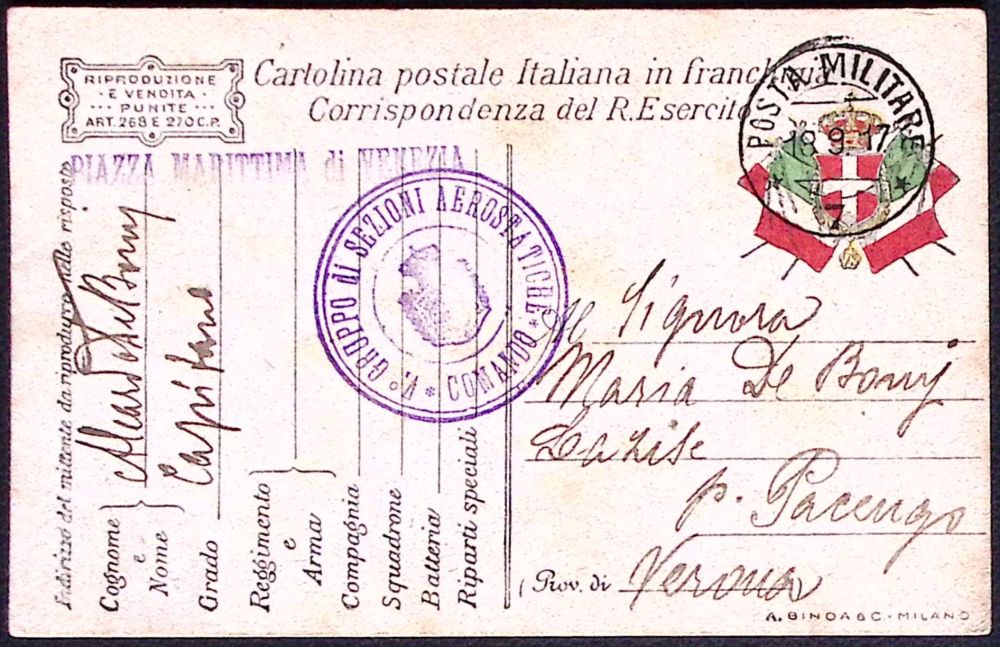 RIPRODUZIONE
E VENDITA
PUNITE
ART. 268 E 270 C.P.
Cartolina postale Italiana in franchigia
Corrispondenza del R. Esercito
POSTA MILITARE
18.9.17
4
7
PIAZZA MARITTIMA di VENEZIA
V.° GRUPPO di SEZIONI AEROSTATICHE
* COMANDO *
Indirizzo del mittente da riprodurre nella risposta
Cognome
e
Nome
Grado
Capitano
Reggimento
e
Arma
Compagnia
Squadrone
Batteria
Riparti speciali
Signora
Maria De Bony
Lazise
p. Pacengo
(Prov. di Verona
A. BINDA & C. - MILANO